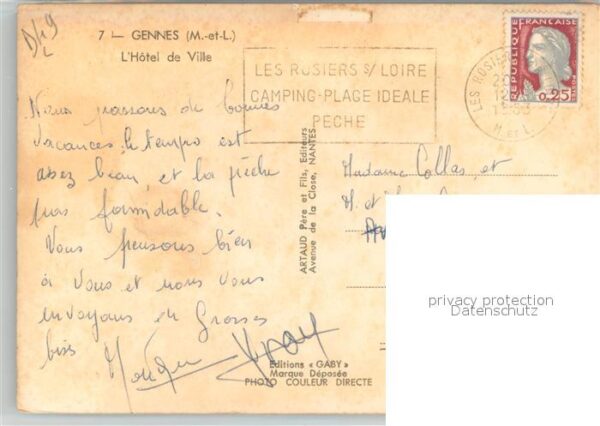 7 — GENNES (M.-et-L.)
L'Hôtel de Ville
LES ROSIERS S/ LOIRE
CAMPING-PLAGE IDEALE
PECHE
REPUBLIQUE FRANÇAISE
0,25
LES ROSIE
M. ET L.
Nous passons de bonnes
vacances, le temps est
assez beau et la pêche
pas formidable.
Vous pensons bien
à vous et nous vous
envoyons de Grosses
bises
ARTAUD Père et Fils, Editeurs
Avenue de la Close, NANTES
Madame Collas et
M. et
Editions « GABY »
Marque Déposée
PHOTO COULEUR DIRECTE
privacy protection
Datenschutz